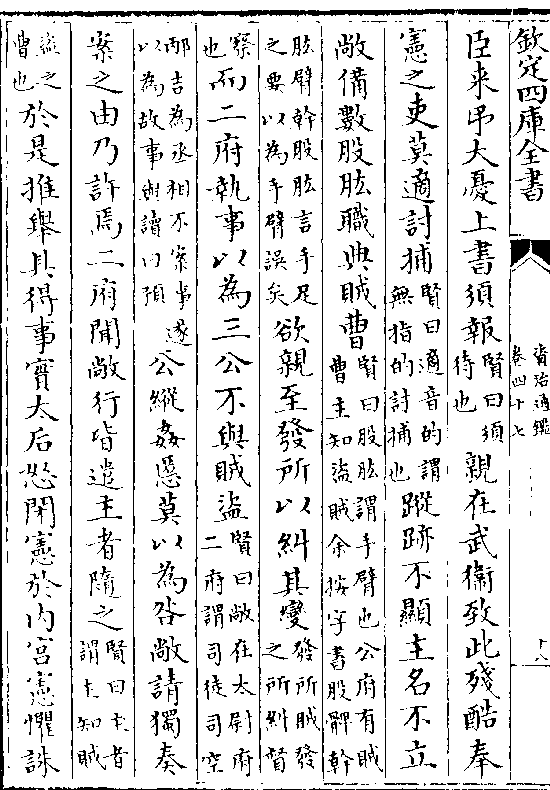 欽定四庫全書
資治通鑑
卷四十七
臣来弔大憂上書須報賢曰須待也親在武衛致此殘酷奉
憲之吏莫適討捕賢曰適音的謂無指的討捕也蹤跡不顯主名不立
敞備數股肱職典賊曹賢曰股肱謂手臂也公府有賊曹主知盜賊余按字書股髀幹
肱臂幹股肱言手足之要以為手臂誤矣欲親至發所以糾其變發所賊發之所糾督
察也而二府執事以為三公不與賊盜賢曰敞在太尉府二府謂司徒司空
邴吉為丞相不案事遂以為故事與讀曰預公縱姦慝莫以為咎敞請獨奏
案之由乃許焉二府聞敞行皆遣主者隨之賢曰主者謂主知賊
盜之曹也於是推舉具得事實太后怒閉憲於内宮憲懼誅